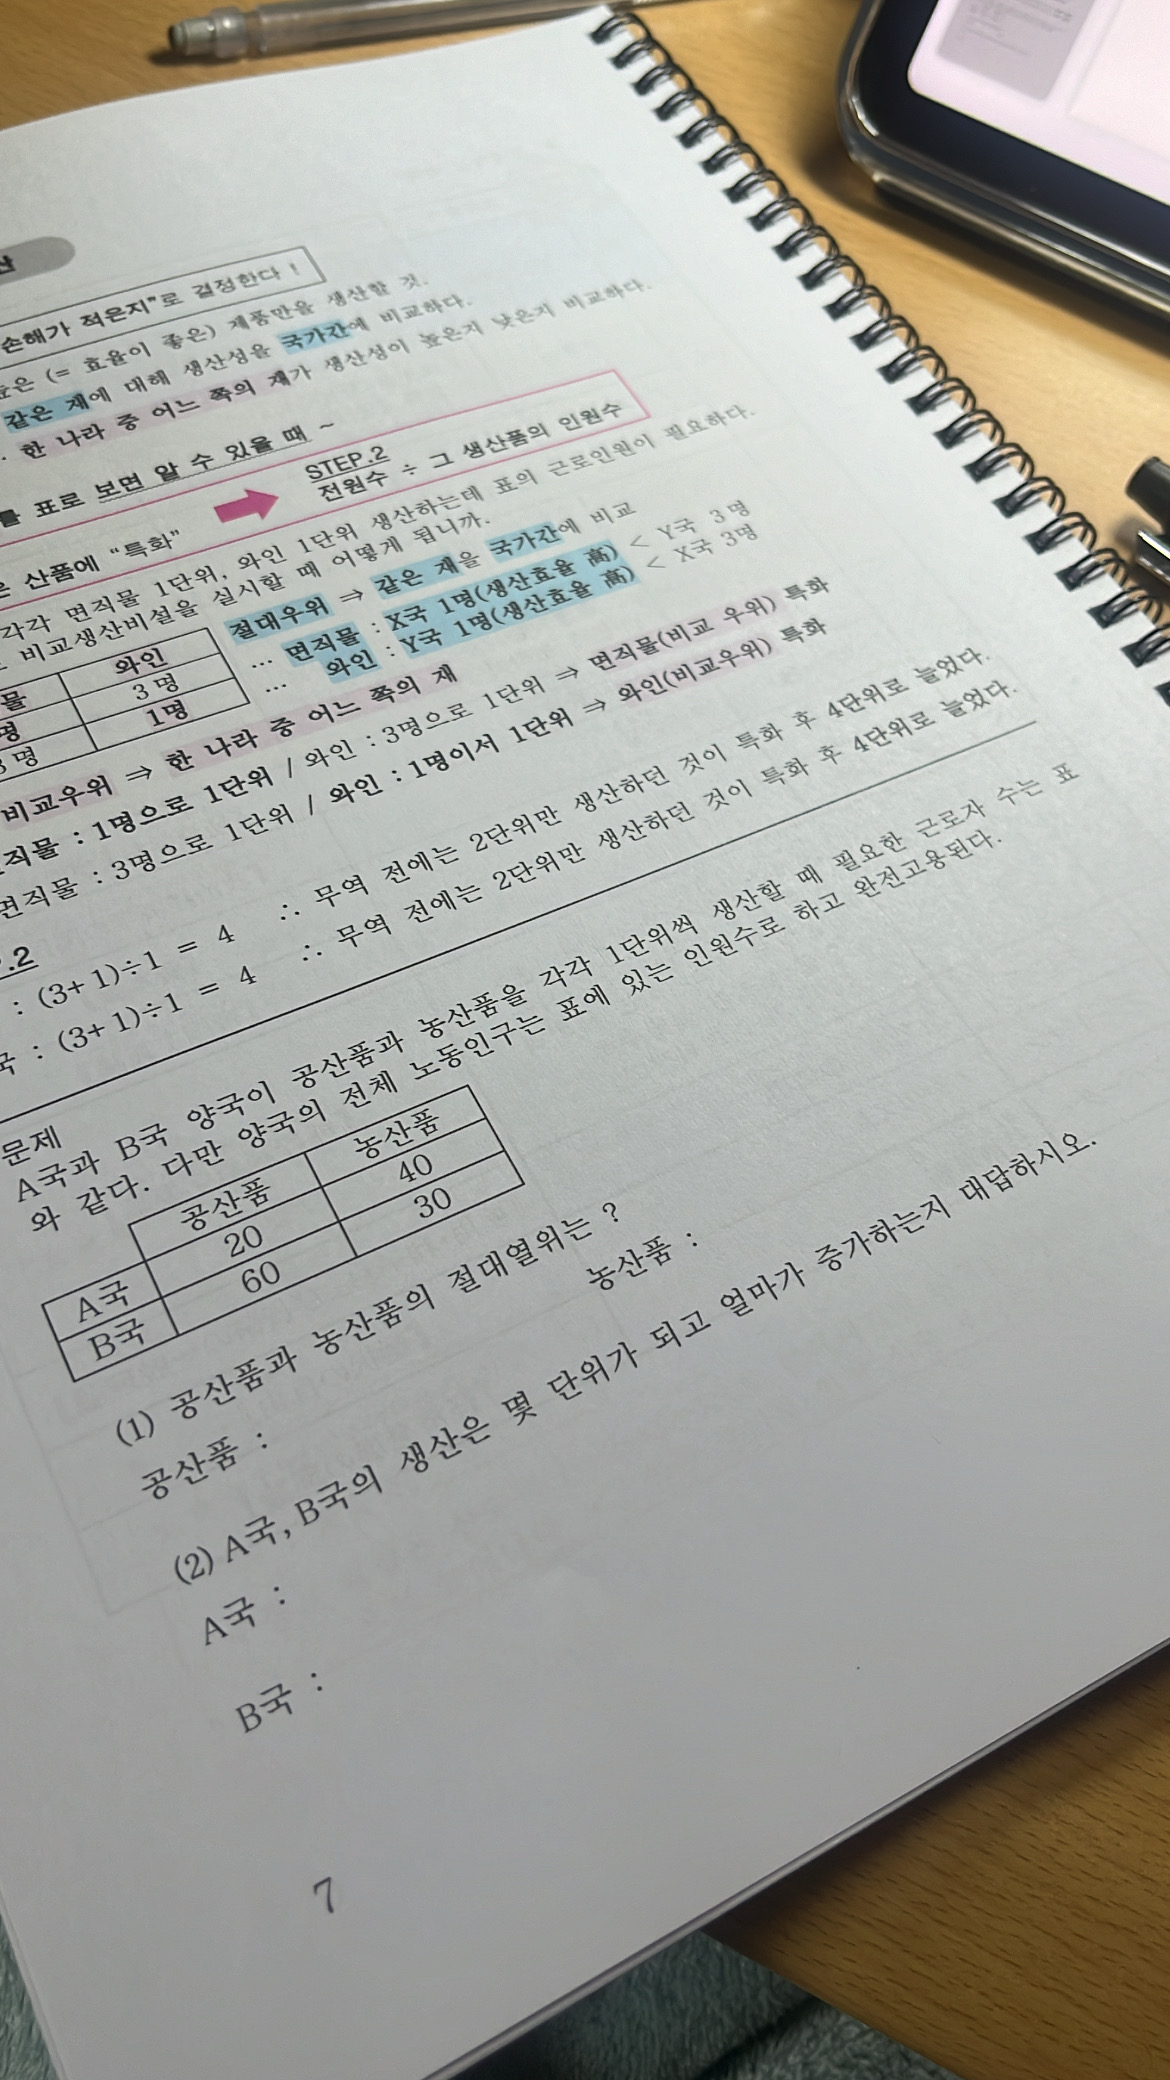 손해가 적은지”로 결정한다 !
은 (= 효율이 좋은) 제품만을 생산할 것.
같은 재에 대해 생산성을 국가간에 비교하다.
. 한 나라 중 어느 쪽의 재가 생산성이 높은지 낮은지 비교하다.
를 표로 보면 알 수 있을 때 ~
은 산품에 “특화”
STEP.2
전원수 ÷ 그 생산품의 인원수
각각 면직물 1단위, 와인 1단위 생산하는데 표의 근로인원이 필요하다.
비교생산비설을 실시할 때 어떻게 됩니까.
물 와인
명 3명
3명 1명
절대우위 ⇒ 같은 재을 국가간에 비교
… 면직물 : X국 1명(생산효율 高) < Y국 3명
… 와인 : Y국 1명(생산효율 高) < X국 3명
비교우위 ⇒ 한 나라 중 어느 쪽의 재
직물 : 1명으로 1단위 / 와인 : 3명으로 1단위 ⇒ 면직물(비교 우위) 특화
면직물 : 3명으로 1단위 / 와인 : 1명이서 1단위 ⇒ 와인(비교우위) 특화
.2
: (3+1)÷1 = 4 ∴ 무역 전에는 2단위만 생산하던 것이 특화 후 4단위로 늘었다.
국 : (3+1)÷1 = 4 ∴ 무역 전에는 2단위만 생산하던 것이 특화 후 4단위로 늘었다.
문제
A국과 B국 양국이 공산품과 농산품을 각각 1단위씩 생산할 때 필요한 근로자 수는 표
와 같다. 다만 양국의 전체 노동인구는 표에 있는 인원수로 하고 완전고용된다.
공산품 농산품
A국 20 40
B국 60 30
(1) 공산품과 농산품의 절대열위는 ?
공산품 : 농산품 :
(2) A국, B국의 생산은 몇 단위가 되고 얼마가 증가하는지 대답하시오.
A국 :
B국 :
7